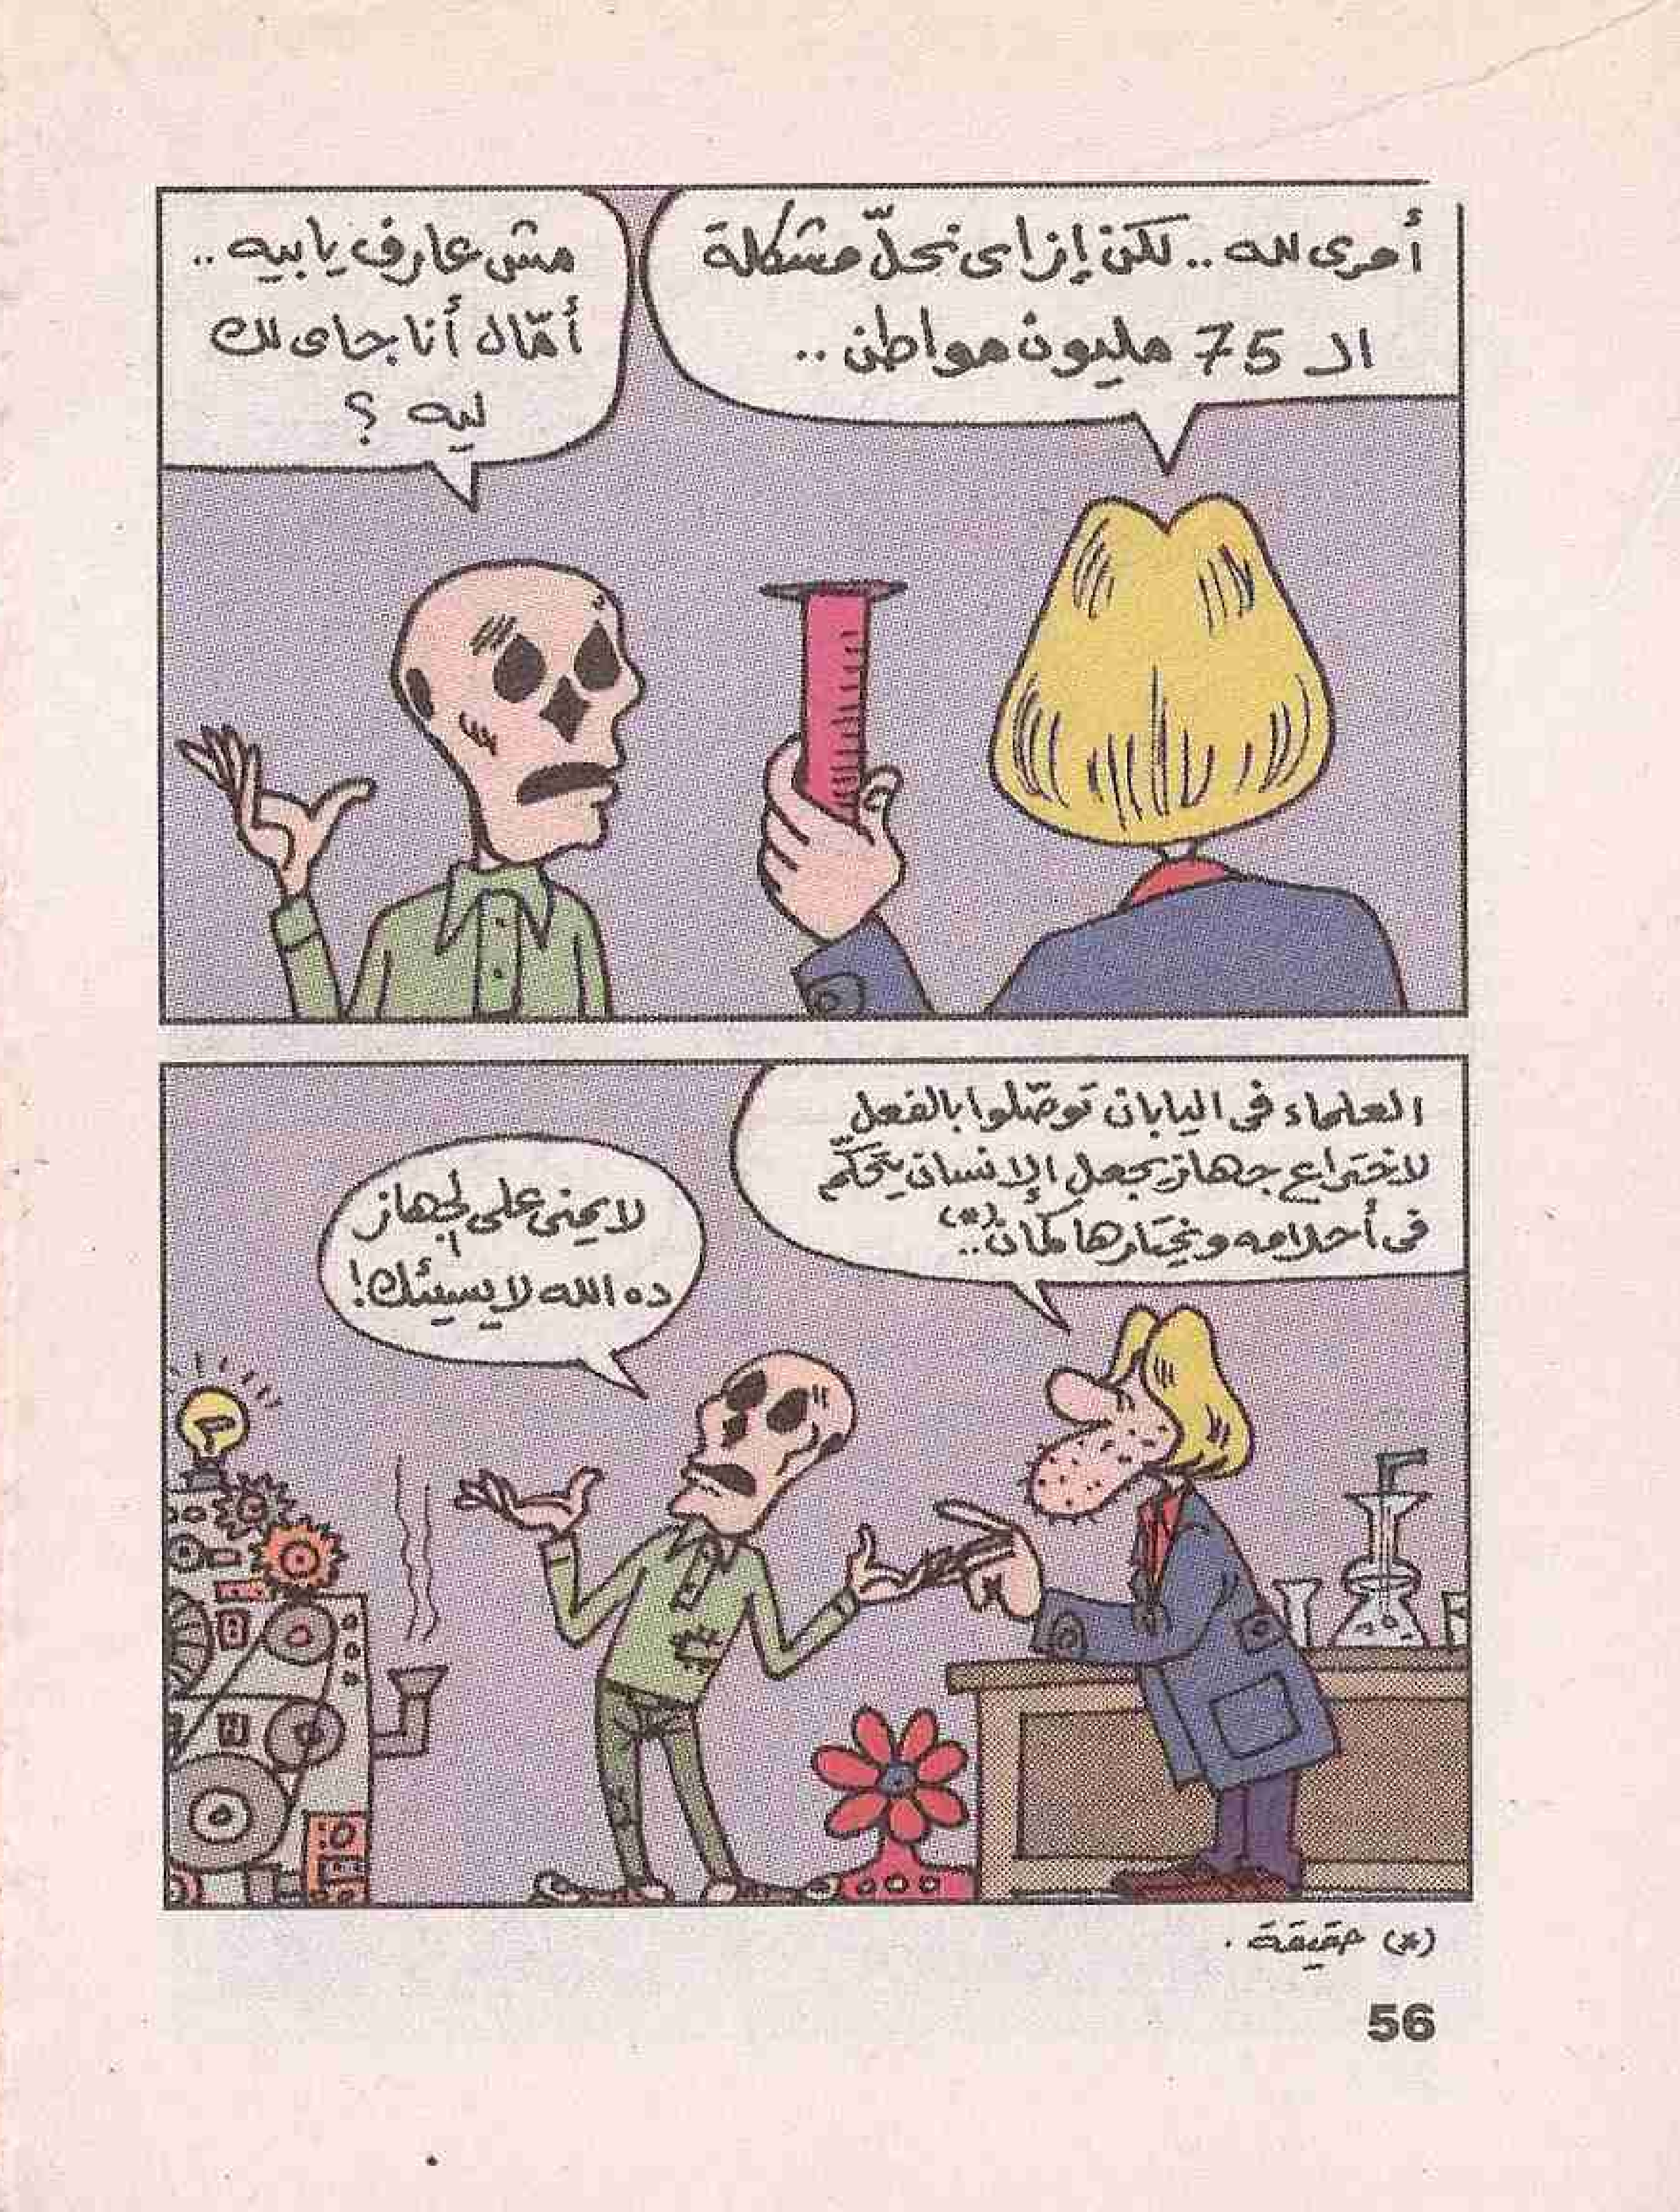 أمرى لله .. لكن إزاى نحلّ مشكلة
الـ 75 مليون مواطن ..
مش عارف يا بيه ..
أمّال أنا جاى لك
ليه ؟
العلماء فى اليابان توصّلوا بالفعل
لاختراع جهاز يجعل الإنسان يتحكّم
فى أحلامه ويختارها كمان (*) ..
لا يمّنى على الجهاز
ده الله لا يسيئك !
(*) حقيقة .
56